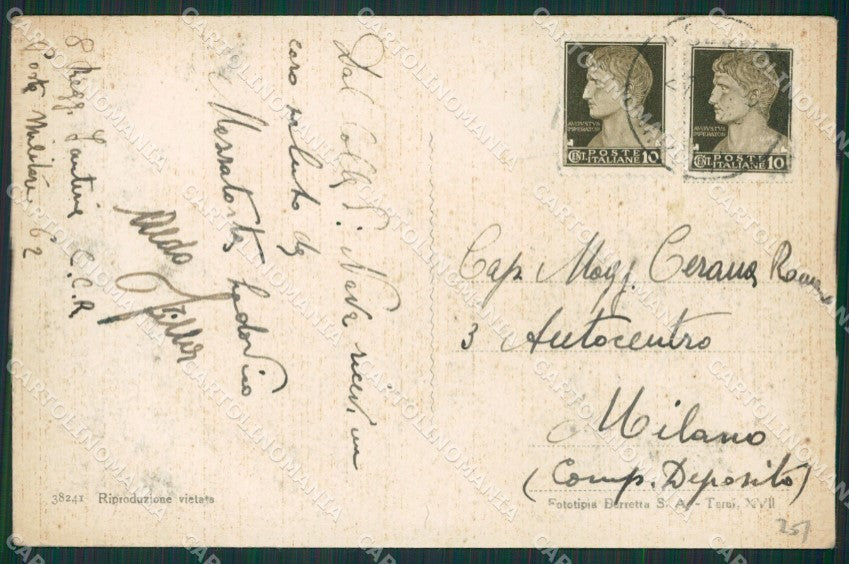 Dal Colle S. Neve ricevi un
caro saluto da
Messarotto Lodovico
Aldo
8 Regg. Fanteria C.C.R
Posta Militare 62
AVGVSTVS
IMPERATOR
POSTE
CENT. ITALIANE 10
AVGVSTVS
IMPERATOR
POSTE
CENT. ITALIANE 10
Cap. Magg. Cerana Romano
3 Autocentro
Milano
(Comp. Deposito)
38241 Riproduzione vietata
Fototipia Berretta S. A. - Terni, XVII
251
CARTOLINOMANIA